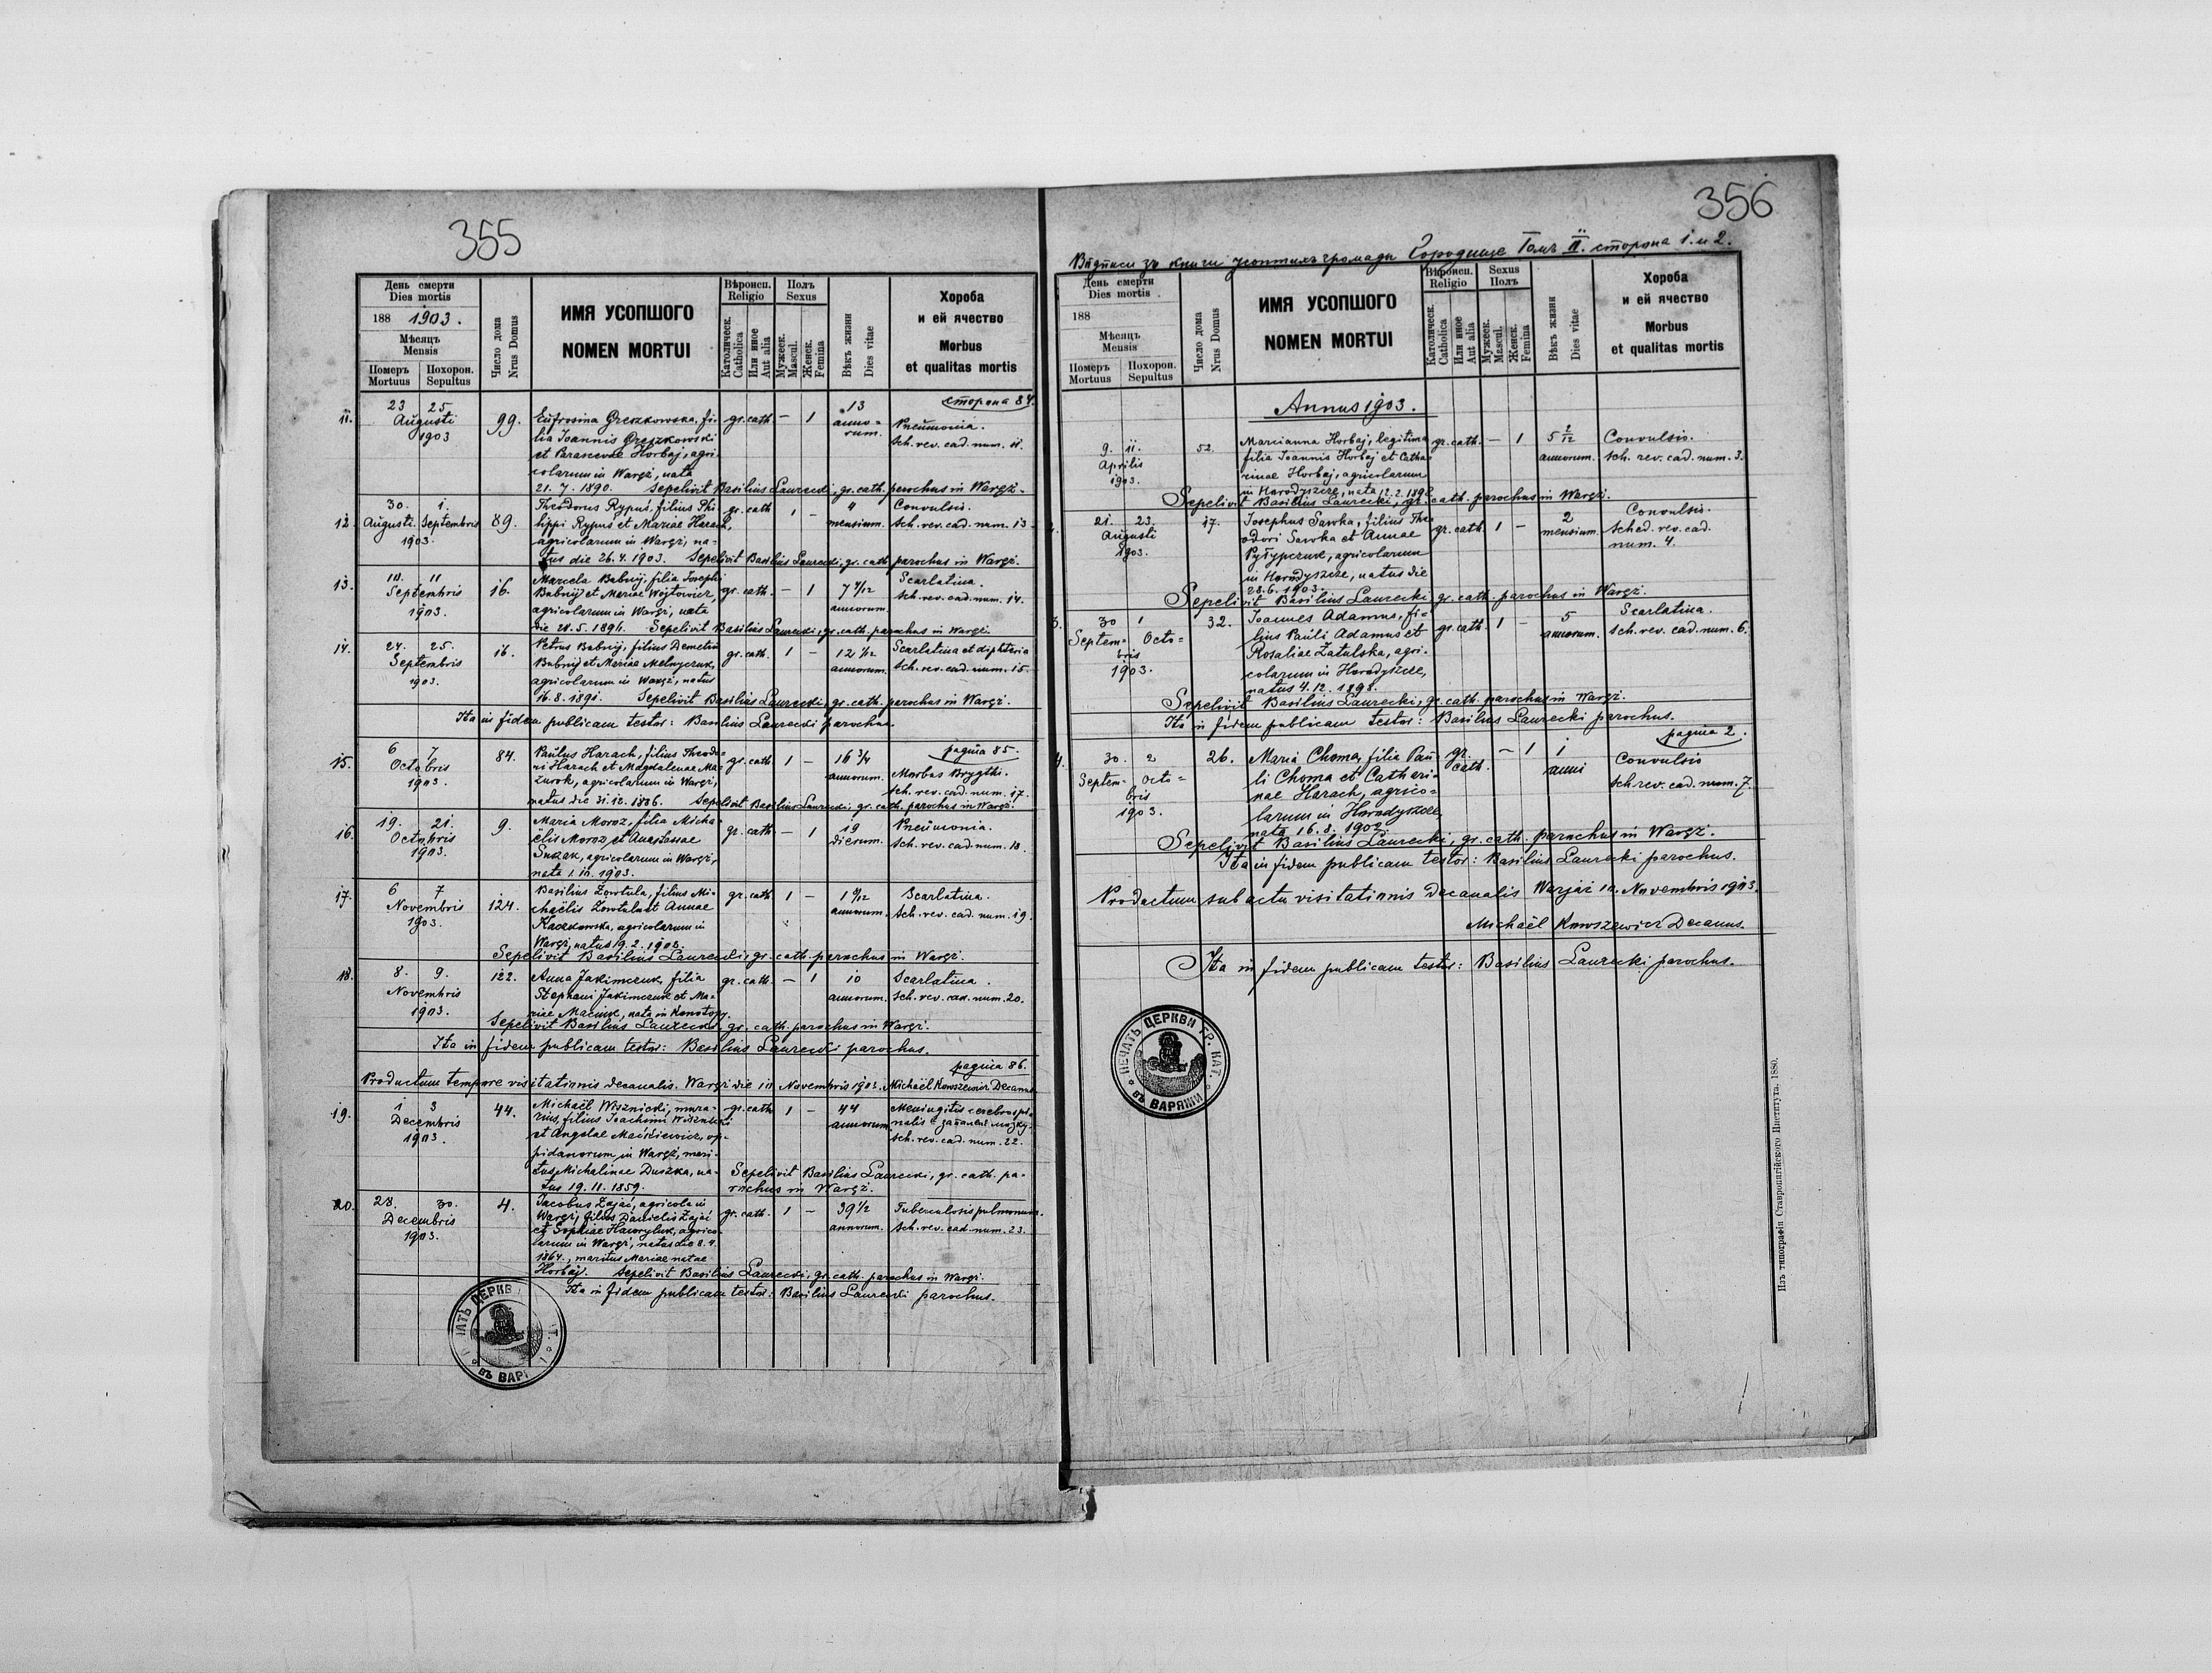 355
День смерти
Dies mortis
188 1903.
Мѣсяцъ
Mensis
Померъ
Mortuus
Похорон.
Sepultus
Число дома
Nrus Domus
ИМЯ УСОПШОГО
NOMEN MORTUI
Вѣроисп.
Religio
Католическ.
Catholica
Или иное
Aut alia
Полъ
Sexus
Мужеск.
Mascul.
Женск.
Femina
Вѣкъ жизни
Dies vitae
Хороба
и ей ячество
Morbus
et qualitas mortis
сторона 84.
11. 23 25 Augusti 1903 99.
Eufrosina Greszkowska, fi-
lia Joannis Greszkowski
et Parascevae Horbaj, agri-
colarum in Waręż, nata
21. 7. 1890. Sepelivit Basilius Laurecki, gr. cath. parochus in Waręż.
gr. cath. – 1 13 anno-
rum.
Pneumonia.
Sch. rev. cad. num. 11.
12. 30. 1. Augusti. Septembris 1903. 89.
Theodorus Rypuś, filius Phi-
lippi Rypuś et Mariae Harach,
agricolarum in Waręż, na-
tus die 26. 4. 1903. Sepelivit Basilius Laurecki, gr. cath. parochus in Waręż.
gr. cath 1 – 4 mensium.
Convulsio.
Sch. rev. cad. num. 13.
13. 10. 11 Septembris 1903. 16.
Marcela Babnij, filia Josephi
Babnij et Mariae Wojtowicz,
agricolarum in Waręż, nata
Sepelivit Basilius Laurecki, gr. cath. parochus in Waręż.
gr. cath. – 1 annorum.
Scarlatina.
Sch. rev. cad. num. 14.
14. 24. 25. Septembris 1903. 16.
Petrus Babnij, filius Demetrii
Babnij et Mariae Melnyczuk,
agricolarum in Waręż, natus
16. 8. 1891. Sepelivit Basilius Laurecki, gr. cath. parochus in Waręż.
gr. cath. 1 – 12 1/12 annorum.
Scarlatina et diphteria
Sch. rev. cad. num. 15.
Ita in fidem publicam testor: Basilius Laurecki parochus.
pagina 85.
15. 6 7 Octobris 1903. 84.
Paulus Harach, filius Theodo-
ri Harach et Magdalenae Ma-
zurok, agricolarum in Waręż,
natus die 31. 12. 1886. Sepelivit Basilius Laurecki, gr. cath. parochus in Waręż.
gr. cath. 1 – 16 3/4 annorum.
Morbus Brygthi.
Sch. rev. cad. num. 17.
16. 19. 21. Octobris 1903. 9.
Maria Moroz, filia Micha-
ëlis Moroz et Anastasiae
agricolarum in Waręż,
nata 1. 10. 1903.
gr. cath. – 1 19 dierum.
Pneumonia.
Sch. rev. cad. num. 18.
17. 6 7 Novembris 1903. 124.
Basilius Zowtula, filius Mi-
chaëlis Zowtula et Annae
Kaczkowska, agricolarum in
Waręż, natus 19. 2. 1902.
Sepelivit Basilius Laurecki, gr. cath. parochus in Waręż.
gr. cath. 1 – annorum.
Scarlatina.
Sch. rev. cad. num. 19.
18. 8. 9. Novembris 1903. 122.
Anna Jakimczuk, filia
Stephani Jakimczuk et Ma-
riae nata in Konotopy.
Sepelivit Basilius Laurecki, gr. cath. parochus in Waręż.
gr. cath. – 1 10 annorum.
Scarlatina.
Sch. rev. cad. num. 20.
Ita in fidem publicam testor: Basilius Laurecki parochus.
pagina 86.
Productum tempore visitationis decanalis. Waręż die 10 Novembris 1903. Michaël Kowszewicz Decanus
19. 1 3 Decembris 1903. 44.
Michaël Wisznicki, mura-
rius, filius Joachimi Wisznicki
et Angelae Maćkiewicz, op-
pidanorum in Waręż, mari-
tus Michalinae Duszka, na-
tus 19. 11. 1859.
Sepelivit Basilius Laurecki, gr. cath. pa-
rochus in Waręż.
gr. cath. 1 – 44 annorum
Meningitis cerebrospi-
nalis
Sch. rev. cad. num. 22.
20. 28. 30. Decembris 1903. 4.
Jacobus Zając, agricola in
Waręż, filius Danielis Zając
et Sophiae Hawryluk, agrico-
larum in Waręż, natus die 8. 4.
1864, maritus Mariae natae
Horbaj. Sepelivit Basilius Laurecki, gr. cath. parochus in Waręż.
gr. cath. 1 – 39 1/2 annorum.
Tuberculosis pulmonum.
Sch. rev. cad. num. 23.
Ita in fidem publicam testor: Basilius Laurecki parochus.
въ ВАР
356
Выписи зъ книги усопшихъ громады Городище Томъ II. сторона 1. и 2.
День смерти
Dies mortis
188
Мѣсяцъ
Mensis
Померъ
Mortuus
Похорон.
Sepultus
Число дома
Nrus Domus
ИМЯ УСОПШОГО
NOMEN MORTUI
Вѣроисп.
Religio
Католическ.
Catholica
Или иное
Aut alia
Sexus
Полъ
Мужеск.
Mascul.
Женск.
Femina
Вѣкъ жизни
Dies vitae
Хороба
и ей ячество
Morbus
et qualitas mortis
Annus 1903.
9. 11. Aprilis 1903. 52.
Marcianna Horbaj, legitima
filia Joannis Horbaj et Catha-
rinae Horbaj, agricolarum
in Horodyszcze, nata 12. 2. 1898
Sepelivit Basilius Laurecki, gr. cath. parochus in Waręż.
gr. cath. – 1 5 2/12 annorum.
Convulsio.
Sch. rev. cad. num. 3.
21. 23. Augusti 1903. 17.
Josephus Sawka, filius The-
odori Sawka et Annae
Pyłypczuk, agricolarum
in Horodyszcze, natus die
28. 6. 1903.
Sepelivit Basilius Laurecki gr. cath. parochus in Waręż.
gr. cath. 1 – 2 mensium.
Convulsio.
Sched. rev. cad.
num. 4.
3. 30 1 Septem- Octo-
bris
1903. 32.
Joannes Adamus, fi-
lius Pauli Adamus et
Rosaliae Zatulska, agri-
colarum in Horodyszcze,
natus 4. 12. 1898.
Sepelivit Basilius Laurecki, gr. cath. parochus in Waręż.
gr. cath. 1 – 5 annorum.
Scarlatina.
Sch. rev. cad. num. 6.
Ita in fidem publicam testor: Basilius Laurecki parochus.
pagina 2.
4. 30. 2 Septem- Octo-
bris
1903. 26.
Maria Choma, filia Pau-
li Choma et Cathari-
nae Harach, agrico-
larum in Horodyszcze,
nata 16. 8. 1902.
Sepelivit Basilius Laurecki, gr. cath. parochus in Waręż.
gr. cath. – 1 1 anni
Convulsio
Sch. rev. cad. num. 7.
Ita in fidem publicam testor: Basilius Laurecki parochus.
Productum sub actu visitationis Decanalis Waręż 10. Novembris 1903.
Michaël Kowszewicz Decanus.
Ita in fidem publicam testor: Basilius Laurecki parochus.
ПЕЧАТЬ ЦЕРКВИ ГР. КАТ.
въ ВАРЯЖИ
Изъ типографіи Ставропигійского Института. 1880.